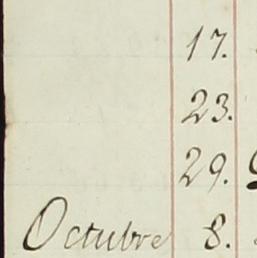 17.
23.
29.
Octubre 8.